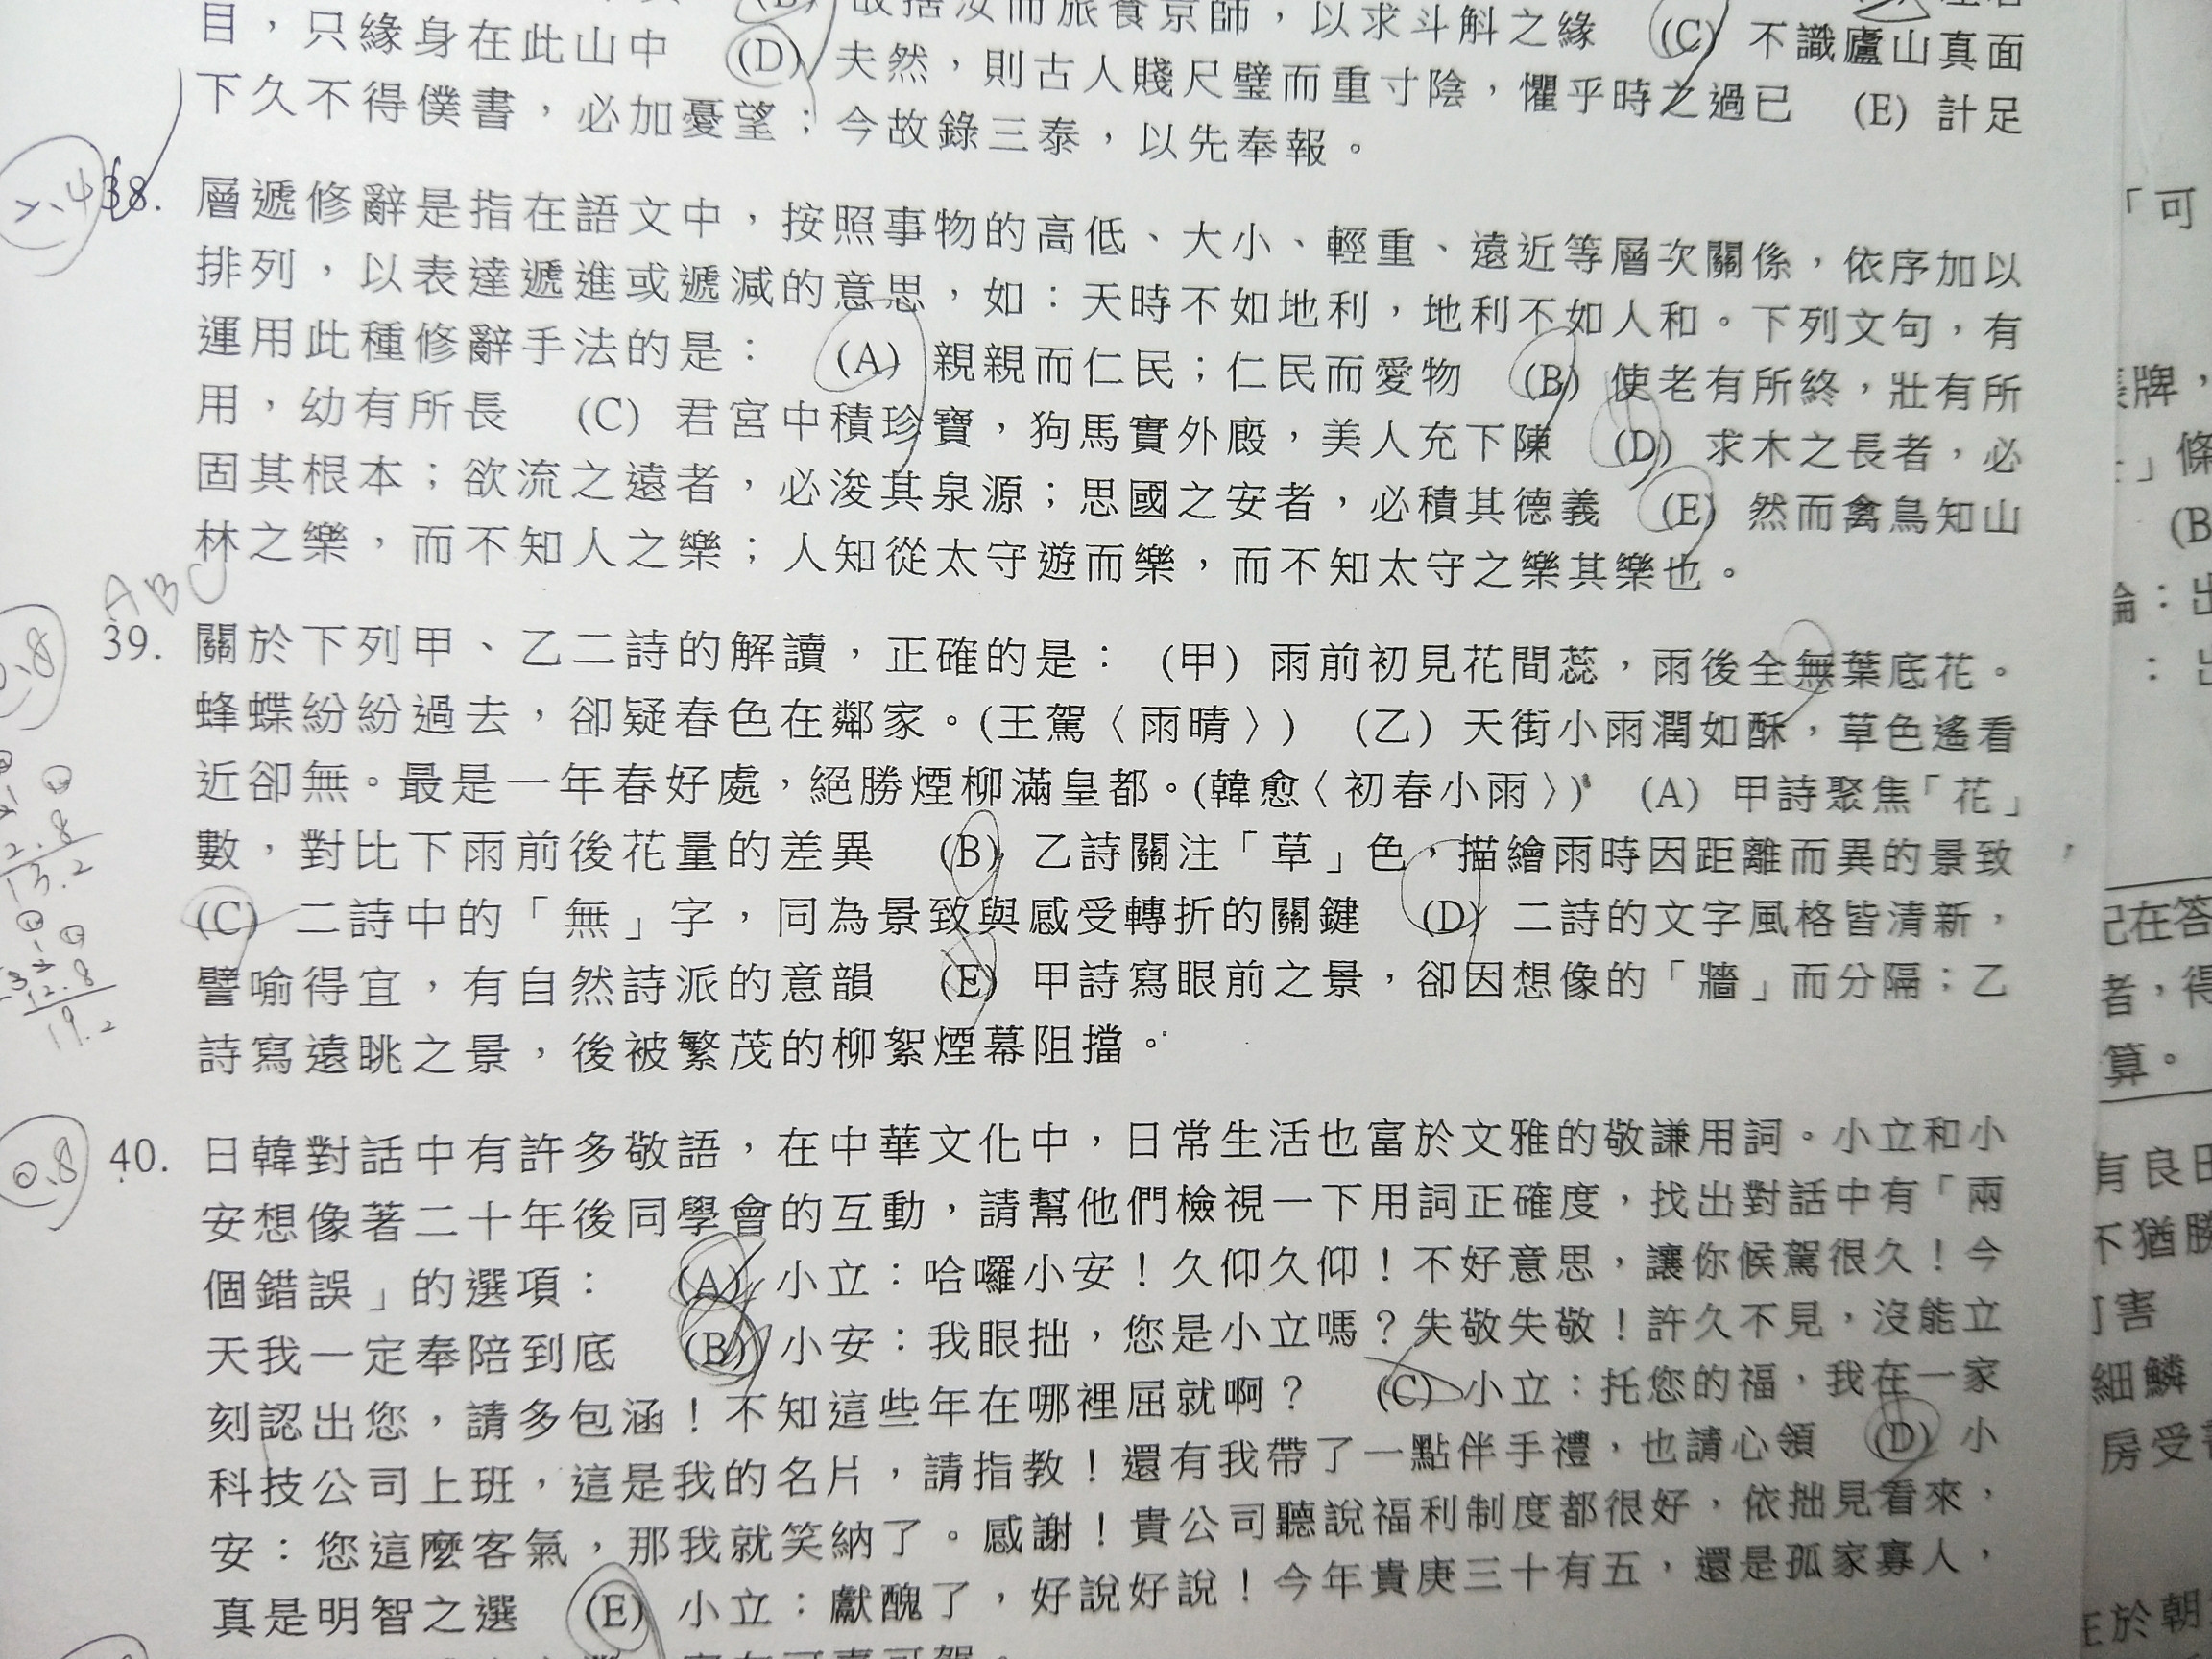 故捨汝而旅食京師，以求斗斛之緣 (C) 不識廬山真面
目，只緣身在此山中 (D) 夫然，則古人賤尺璧而重寸陰，懼乎時之過已 (E) 計足
下久不得僕書，必加憂望；今故錄三泰，以先奉報。
38. 層遞修辭是指在語文中，按照事物的高低、大小、輕重、遠近等層次關係，依序加以
排列，以表達遞進或遞減的意思，如：天時不如地利，地利不如人和。下列文句，有
運用此種修辭手法的是： (A) 親親而仁民；仁民而愛物 (B) 使老有所終，壯有所
用，幼有所長 (C) 君宮中積珍寶，狗馬實外廄，美人充下陳 (D) 求木之長者，必
固其根本；欲流之遠者，必浚其泉源；思國之安者，必積其德義 (E) 然而禽鳥知山
林之樂，而不知人之樂；人知從太守遊而樂，而不知太守之樂其樂也。
ABC
39. 關於下列甲、乙二詩的解讀，正確的是： (甲) 雨前初見花間蕊，雨後全無葉底花。
蜂蝶紛紛過去，卻疑春色在鄰家。(王駕〈雨晴〉) (乙) 天街小雨潤如酥，草色遙看
近卻無。最是一年春好處，絕勝煙柳滿皇都。(韓愈〈初春小雨〉) (A) 甲詩聚焦「花」
數，對比下雨前後花量的差異 (B) 乙詩關注「草」色，描繪雨時因距離而異的景致
(C) 二詩中的「無」字，同為景致與感受轉折的關鍵 (D) 二詩的文字風格皆清新，
譬喻得宜，有自然詩派的意韻 (E) 甲詩寫眼前之景，卻因想像的「牆」而分隔；乙
詩寫遠眺之景，後被繁茂的柳絮煙幕阻擋。
13.2
12.8
19.2
0.8
40. 日韓對話中有許多敬語，在中華文化中，日常生活也富於文雅的敬謙用詞。小立和小
安想像著二十年後同學會的互動，請幫他們檢視一下用詞正確度，找出對話中有「兩
個錯誤」的選項： (A) 小立：哈囉小安！久仰久仰！不好意思，讓你候駕很久！今
天我一定奉陪到底 (B) 小安：我眼拙，您是小立嗎？失敬失敬！許久不見，沒能立
刻認出您，請多包涵！不知這些年在哪裡屈就啊？ (C) 小立：托您的福，我在一家
科技公司上班，這是我的名片，請指教！還有我帶了一點伴手禮，也請心領 (D) 小
安：您這麼客氣，那我就笑納了。感謝！貴公司聽說福利制度都很好，依拙見看來，
真是明智之選 (E) 小立：獻醜了，好說好說！今年貴庚三十有五，還是孤家寡人，
「可
牌，
」條
(B
：出
記在答
者，得
算。
有良田
不猶勝
害
細鱗
房受
於朝